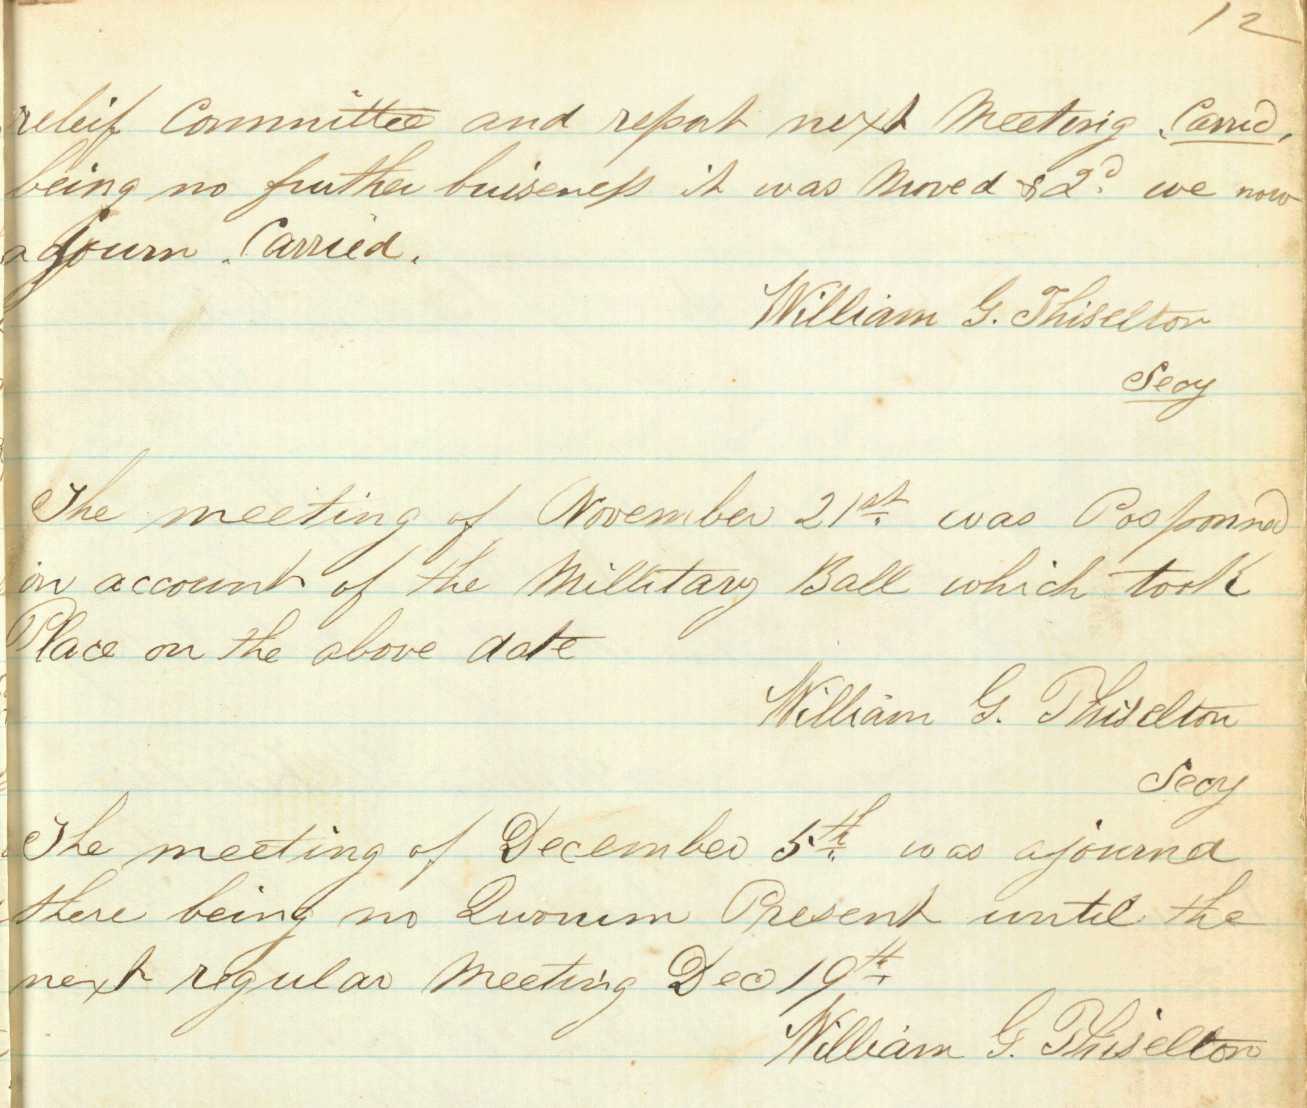 12
releif Committee and report next Meeting Carried,
being no further buiseness it was Moved & 2d we now
adjourn Carried.
William G. Thiselton
Secy
The meeting of November 21st was Posponned
on account of the Millitary Ball which took
Place on the above date
William G. Thiselton
Secy
The meeting of December 5th was ajournd
there being no Quorum Present until the
next regular Meeting Dec 19th
William G. Thiselton